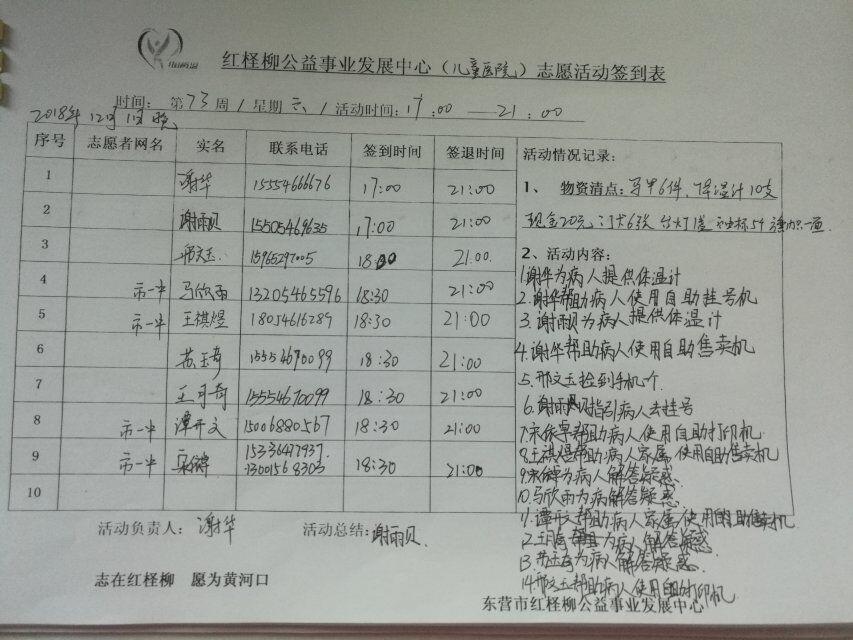 红柽柳公益事业发展中心（儿童医院）志愿活动签到表
时间：第73周/星期六/活动时间：17：00——21：00
2018年12月1日晚
序号 志愿者网名 实名 联系电话 签到时间 签退时间
1 谢华 15554666676 17:00 21:00
2 谢雨贝 15505469635 17:00 21:00
3 邢文玉 15965297005 18:30 21:00
4 市一中 马欣雨 13205465596 18:30 21:00
5 市一中 王祺煜 18054616289 18:30 21:00
6 苏玉奇 15554670099 18:30 21:00
7 王可奇 15554670099 18:30 21:00
8 市一中 谭开文 15006880567 18:30 21:00
9 市一中 15336477937. 13001568303 18:30 21:00
10
活动情况记录：
1、 物资清点：马甲6件，体温计10支
现金20元 台灯1盏
2、活动内容：
1.谢华为病人提供体温计
2.谢华帮助病人使用自助挂号机
3.谢雨贝为病人提供体温计
4.谢华帮助病人使用自助售卖机
5.邢文玉捡到手机个.
6.谢雨贝指引病人去挂号
7.帮助病人使用自助打印机
8.王祺煜帮助病人家属使用自助售卖机
9.为病人解答疑惑
10.马欣雨为病解答疑惑
11.谭开文帮助病人家属使用自助售卖机
12.为病人解答疑惑
13.苏玉奇为病人解答疑惑.
14.邢文玉帮助病人使用自助打印机
活动负责人：谢华 活动总结：谢雨贝.
志在红柽柳 愿为黄河口
东营市红柽柳公益事业发展中心